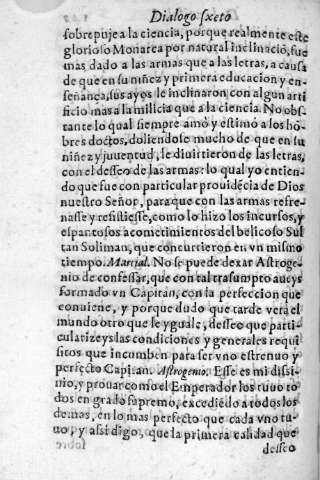 Dialogo sxeto
sobrepuje a la ciencia, porque realmente este
glorioso Monarca por natural inclinació, fue
mas dado a las armas que a las letras, a causa
de que en su niñez y primera educacion y en-
señança, sus ayos le inclinaron con algun arti
ficio mas a la milicia que a la ciencia. No obs-
tante lo qual siempre amó y estimó a los hó-
bres doctos, doliendose mucho de que en su
niñez y juuentud, le diuirtieron de las letras,
con el desseo de las armas: lo qual yo entien-
do que fue con particular prouidécia de Dios
nuestro Señor, para que con las armas refre-
nasse y resistiesse, como lo hizo los incursos, y
espantosos acometimientos del belicoso Sul
tan Soliman, que concurrieron en vn mismo
tiempo. Marcial. No se puede dexar Astroge-
nio de confessar, que con tal trasumpto aueys
formado vn Capitan, con la perfeccion que
conuiene, y porque dudo que tarde vera el
mundo otro que le yguale, desseo que parti-
cularizeys las condiciones y generales requi
sitos que incumben para ser vno estrenuo y
perfecto Capitan. Astrogenio. Esse es mi dissi-
nio, y prouar como el Emperador los tuuo to
dos en grado supremo, excediédo a todos los
demas, en lo mas perfecto que cada vno tu-
uo, y assi digo, que la primera calidad que
desseo